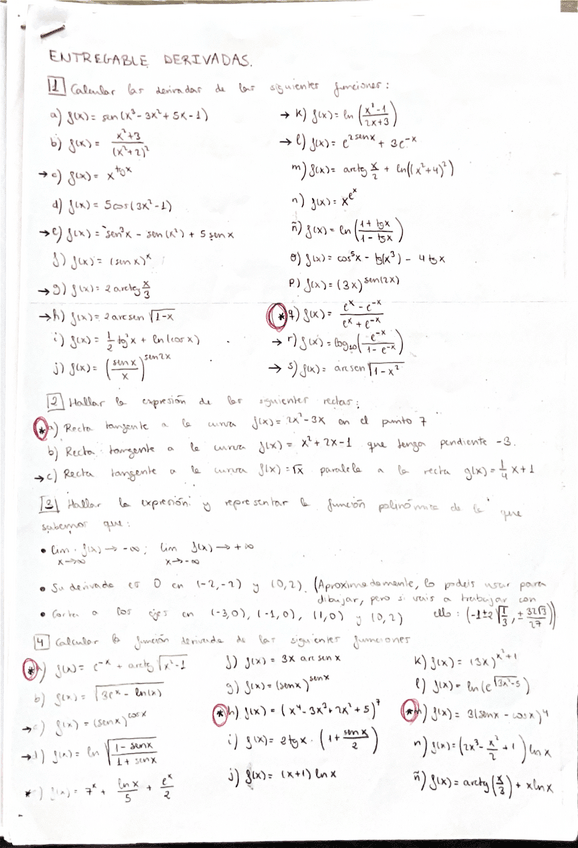 ENTREGABLE DERIVADAS.
1 Calcular las derivadas de las siguientes funciones:
a) f(x) = sen(x³-3x²+5x-1)
b) f(x) = (x²+3)/(x²+2)²
→ c) f(x) = x^(tg x)
d) f(x) = 5cos(3x²-1)
→ e) f(x) = sen²x - sen(x²) + 5 sen x
f) f(x) = (sen x)^x
→ g) f(x) = 2 arctg x/3
→ h) f(x) = 2 arcsen √(1-x)
i) f(x) = 1/2 tg²x + ln(cos x)
j) f(x) = (sen x/x)^(sen 2x)
→ k) f(x) = ln((x²-1)/(2x+3))
→ l) f(x) = e^(2 sen x) + 3e^(-x)
m) f(x) = arctg x/2 + ln((x²+4)²)
n) f(x) = x^(e^x)
ñ) f(x) = ln((1+tg x)/(1-tg x))
o) f(x) = cos⁵x - tg(x³) - 4 tg x
p) f(x) = (3x)^(sen(2x))
* q) f(x) = (e^x - e^(-x))/(e^x + e^(-x))
→ r) f(x) = log₁₀(e^(-x)/(1-e^(-x)))
→ s) f(x) = arcsen √(1-x²)
2 Hallar la expresión de las siguientes rectas:
* a) Recta tangente a la curva f(x) = 2x²-3x en el punto 7
b) Recta tangente a la curva f(x) = x²+2x-1 que tenga pendiente -3.
→ c) Recta tangente a la curva f(x) = √x paralela a la recta g(x) = 1/4 x+1
3 Hallar la expresión y representar la función polinómica de la que
sabemos que:
• lim f(x) → -∞; lim f(x) → +∞
x→∞ x→-∞
• Su derivada es 0 en (-2,-2) y (0,2). (Aproximadamente, lo podéis usar para
dibujar, pero si vais a trabajar con
• Corta a los ejes en (-3,0), (-1,0), (1,0) y (0,2) ello:
4 Calcular la función derivada de las siguientes funciones
* a) f(x) = e^(-x) + arctg √(x²-1)
b) f(x) = √(3e^x - ln(x))
→ c) f(x) = (sen x)^(cos x)
→ d) f(x) = ln √((1-sen x)/(1+sen x))
f(x) = 7^x + ln x/5 + e^x/2
f) f(x) = 3x arcsen x
g) f(x) = (sen x)^(sen x)
* h) f(x) = (x⁴-3x³+2x²+5)⁷
i) f(x) = 2 tg x · (1 + sen x/2)
j) f(x) = (x+1) ln x
k) f(x) = (3x)^(x²+1)
l) f(x) = ln(e^(√(3x²-5)))
* f(x) = 3(sen x - cos x)⁴
n) f(x) = (2x³ - x²/2 + 1) ln x
ñ) f(x) = arctg(x/3) + x ln x